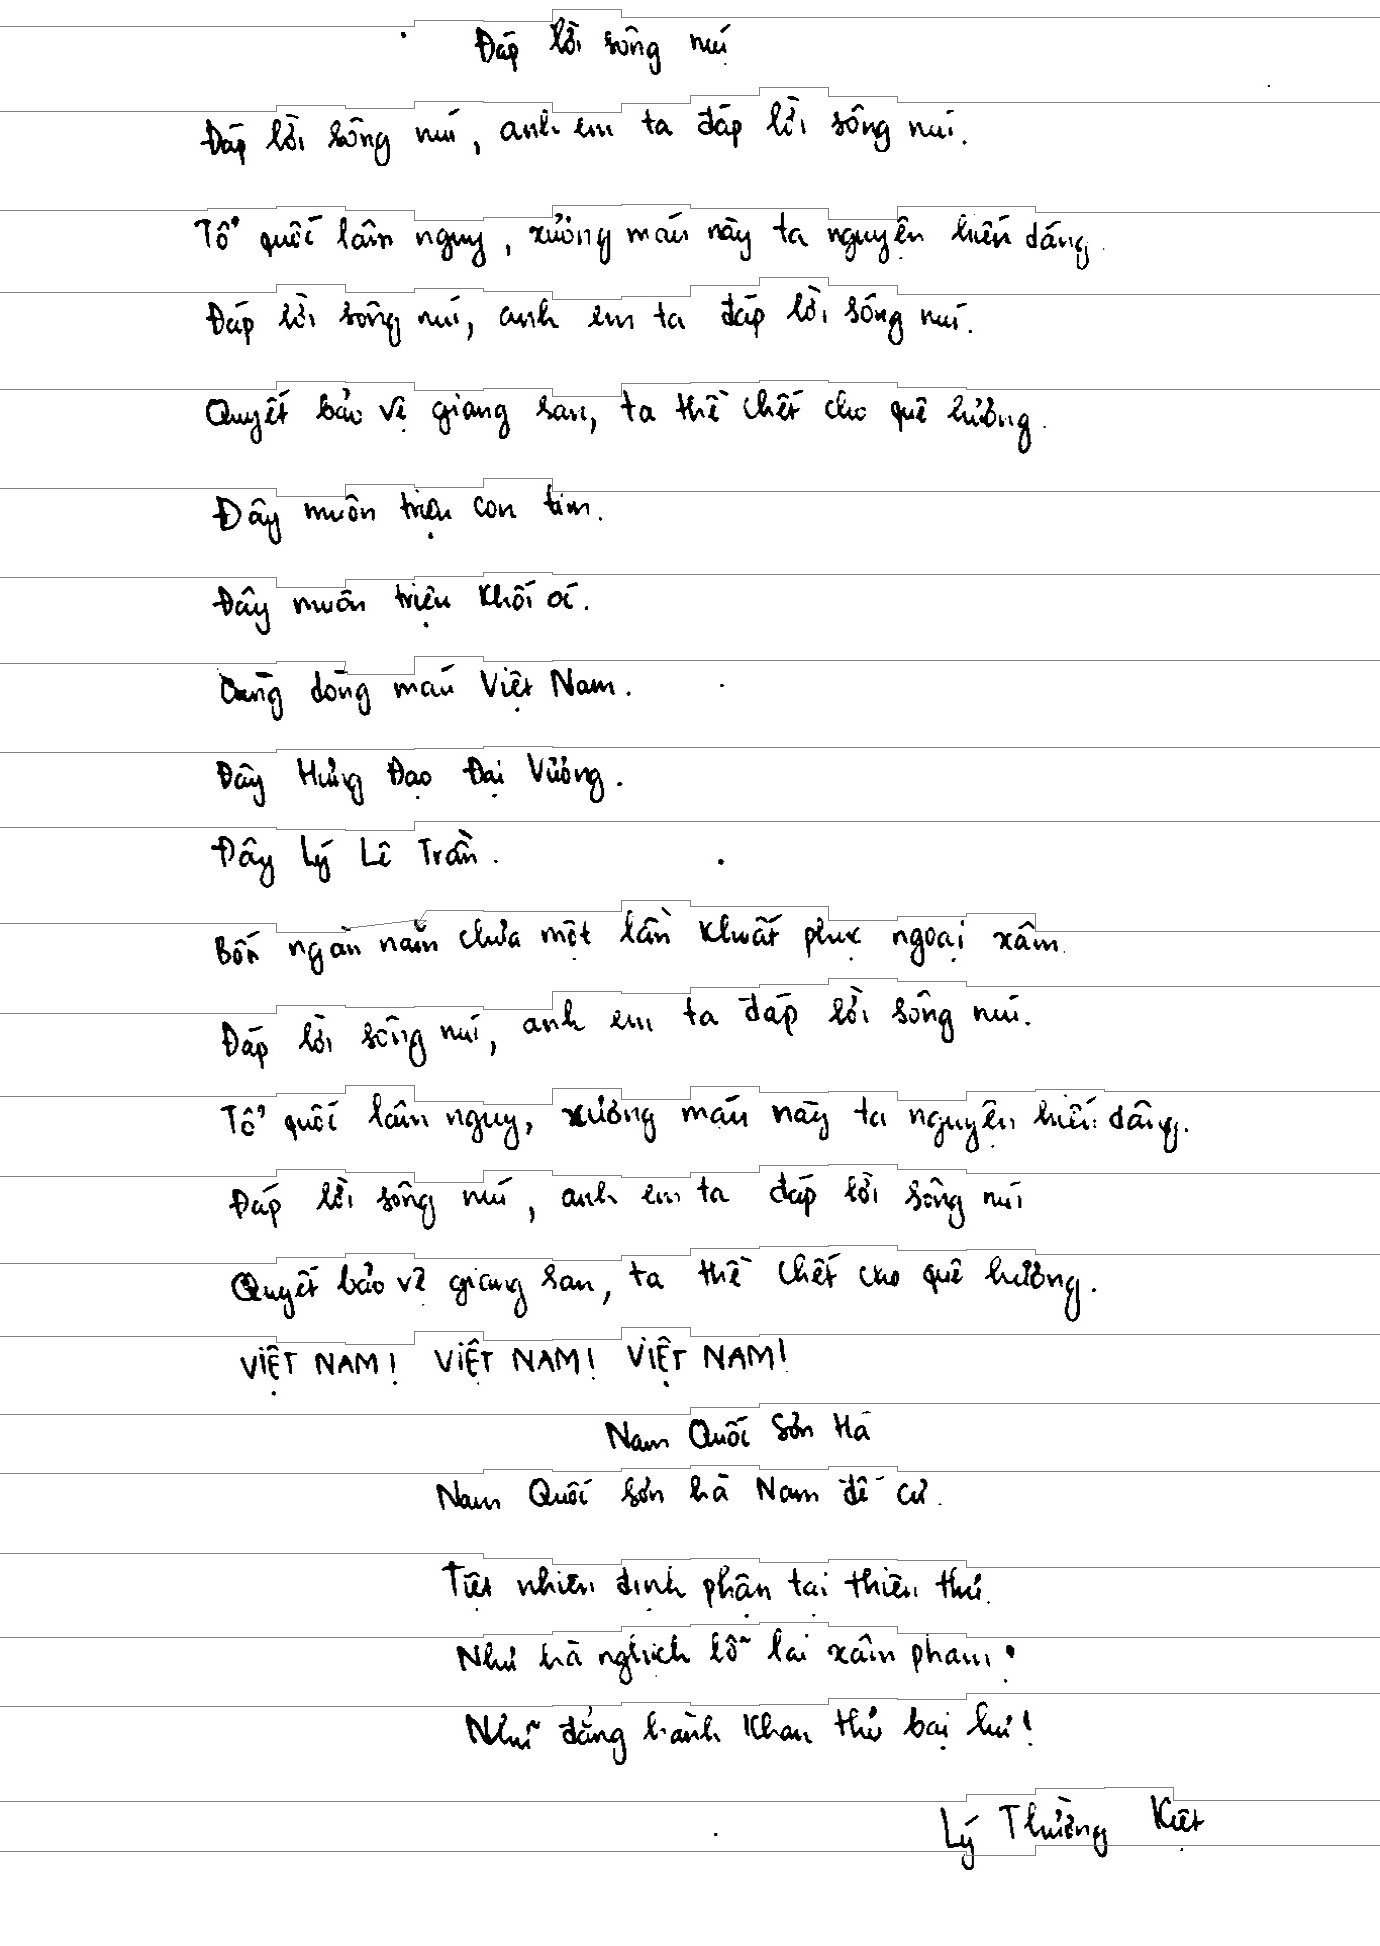 Đáp lời sông núi
Đáp lời sông núi, anh em ta đáp lời sông núi.
Tổ quốc lâm nguy, xương máu này ta nguyện hiến dâng.
Đáp lời sông núi, anh em ta đáp lời sông núi.
Quyết bảo vệ giang san, ta thề chết cho quê hương.
Đây muôn triệu con tim.
Đây muôn triệu khối óc.
Cùng dòng máu Việt Nam.
Đây Hưng Đạo Đại Vương.
Đây Lý Lê Trần.
Bốn ngàn năm chưa một lần khuất phục ngoại xâm.
Đáp lời sông núi, anh em ta đáp lời sông núi.
Tổ quốc lâm nguy, xương máu này ta nguyện hiến dâng.
Đáp lời sông núi, anh em ta đáp lời sông núi
Quyết bảo vệ giang san, ta thề chết cho quê hương.
VIỆT NAM! VIỆT NAM! VIỆT NAM!
Nam Quốc Sơn Hà
Nam Quốc sơn hà Nam đế cư.
Tiệt nhiên định phận tại thiên thư.
Như hà nghịch lỗ lai xâm phạm?
Nhữ đẳng hành khan thủ bại hư!
Lý Thường Kiệt